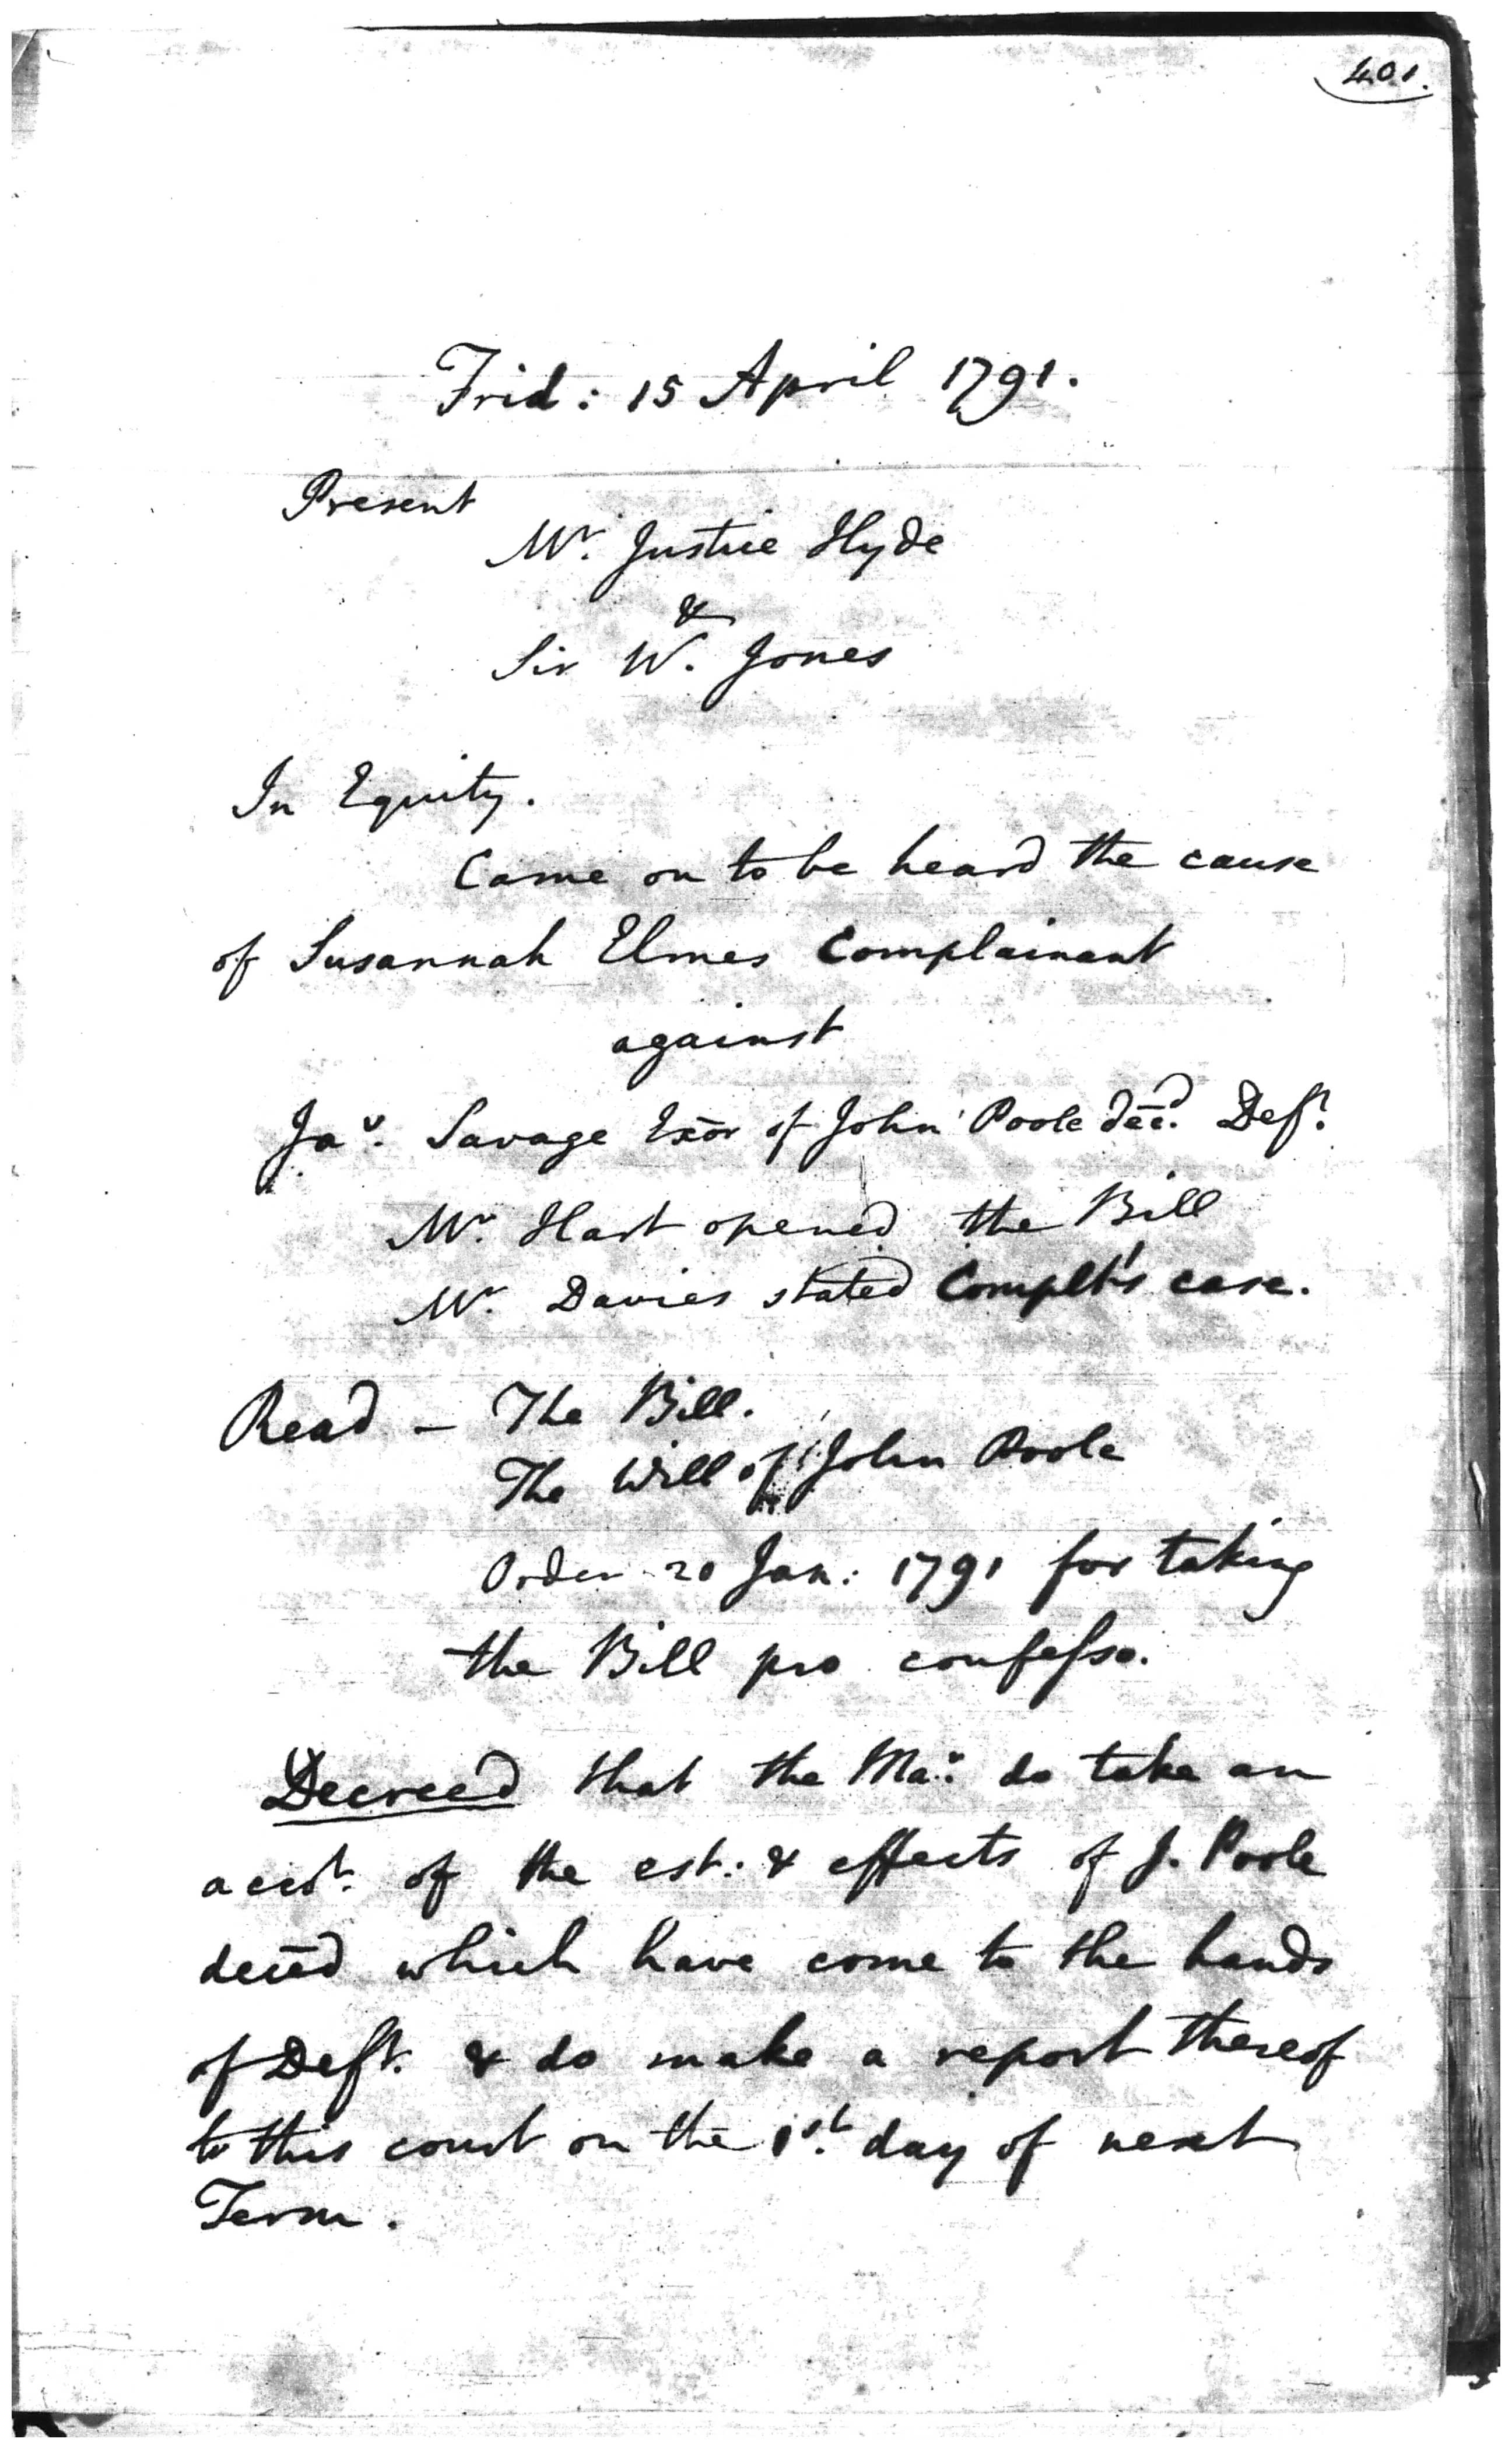 401.
Frid: 15 April 1791.
Present
Mr. Justice Hyde
&
Sir W. Jones
In Equity.
Came on to be heard the cause
of Susannah Elmes Complainant
against
Jas. Savage Exōr of John Poole dēc̄d. Deft.
Mr. Hart opened the Bill
Mr. Davies stated Complt's case.
Read – The Bill.
The Will of John Poole
Order 20 Jan: 1791 for taking
the Bill pro confeſso.
Decreed that the Mar. do take an
accot. of the est: & effects of J. Poole
decēd which have come to the hands
of Deft. & do make a report thereof
to this court on the 1st. day of next
Term.